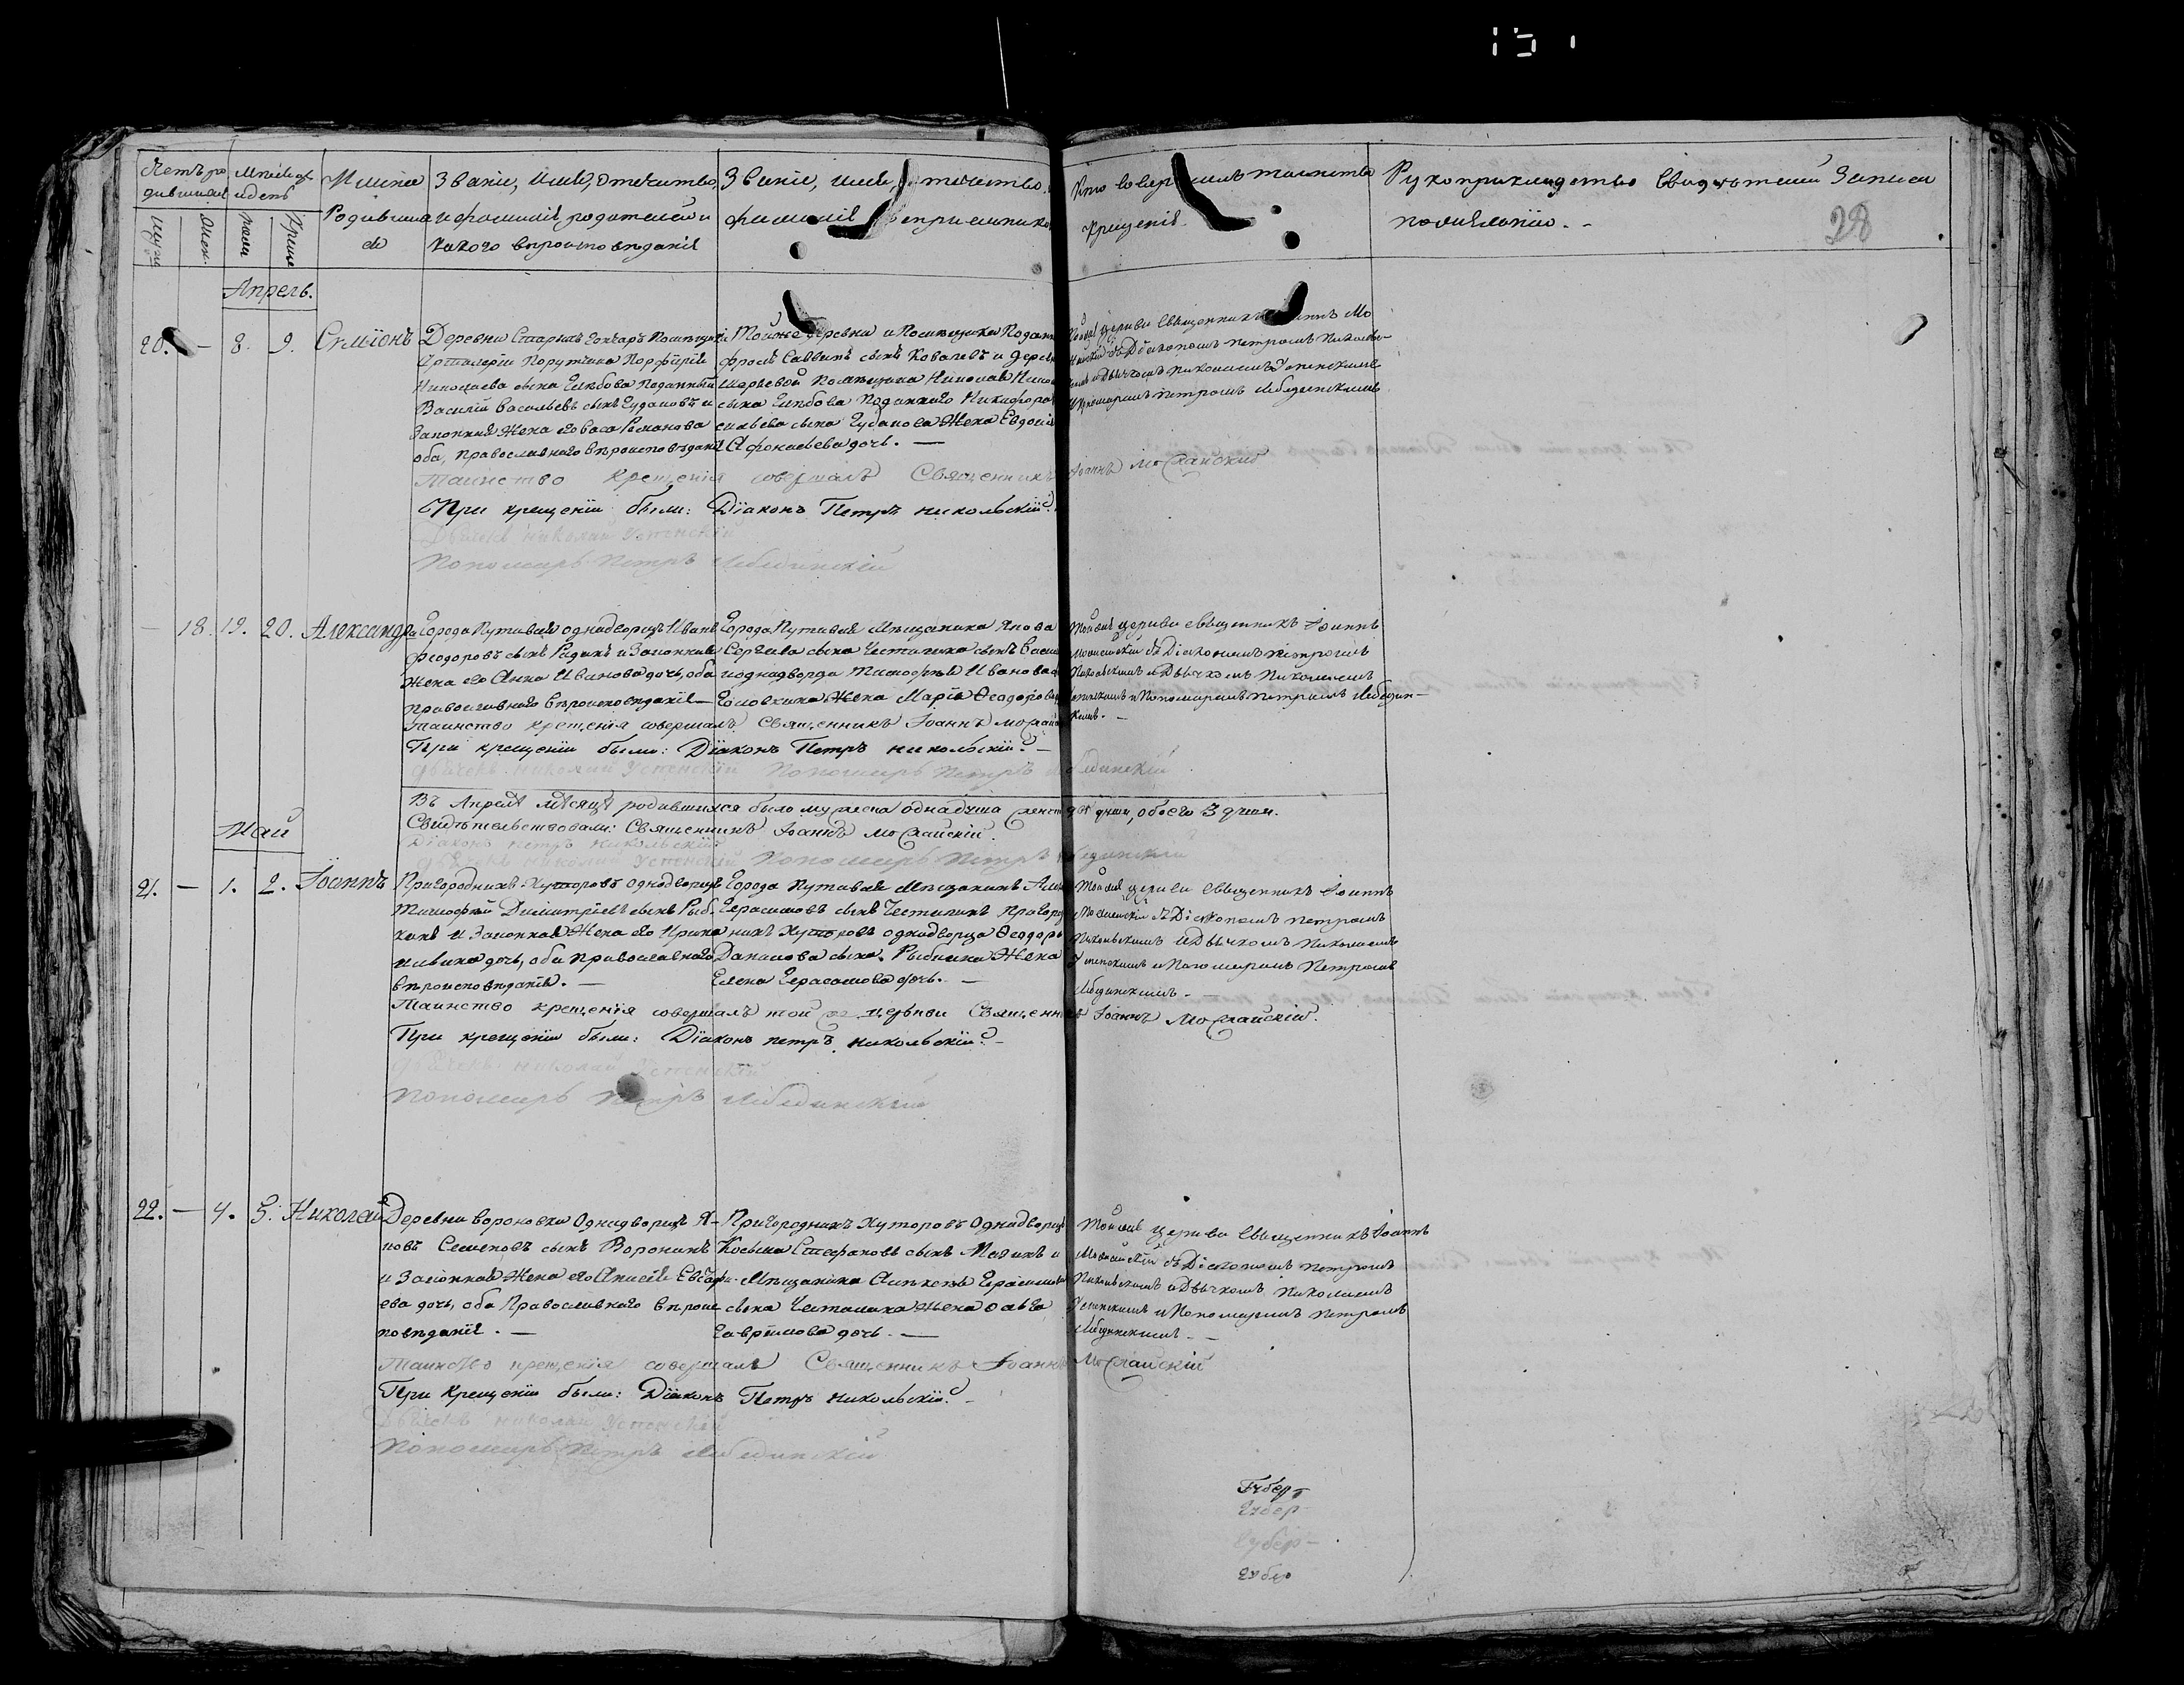 28
Счетъ родившихся
Мѣсяцъ и день
Имена Родившихся
Званіе, имя, отчество, и фамилія родителей и какого вѣроисповѣданія
Званіе, имя, отчество, фамилія воспріемниковъ
Кто совершилъ таинство крещенія
Рукоприкладство свидѣтелей записи по желанію.
Апрель.
20. — 8. 9. Симіонъ
Деревни Старыхъ Гончаръ Помѣщика
Артилеріи Порутчика Порфирія
Николаева сына Глѣбова поданный
Василій Васильевъ сынъ Гудановъ и
Законная Жена его Васа Романова
оба, православнаго вѣроисповѣданія
Тойже деревни и Помѣщика Подан
Фролъ Саввинъ сынъ Ковалевъ и дерев
Помѣщика Николая Никол
сына Глѣбова поданнаго Никифора
сильева сына Гуданова Жена Евдокія
Афонасьева дочь. —
церкви Священникъ Іоаннъ Мо
съ Діакономъ Петромъ Николь-
и Дьячкомъ Николаемъ Успенскимъ
и Пономаремъ Петромъ Лебединскимъ
Таинство Крещенія совершалъ Священникъ Іоаннъ Можайскій
При крещеніи были: Діаконъ Петръ Никольскій.
Дьячекъ Николай Успенскій
Пономарь Петръ Лебединскій
— 18. 19. 20. Александра
Города Путивля однодворецъ Иванъ
Феодоровъ сынъ Рудинъ и Законная
Жена его Анна Иванова дочь, оба
православнаго вѣроисповѣданія —
Города Путивля Мѣщанина Якова
Сергѣева сына Четалина сынъ Васи
и однодворца Тимофея Иванова с
Головкина Жена Марія Ѳеодорова
Тойже церкви священникъ Іоаннъ
Можайскій съ Діакономъ Петромъ
Никольскимъ и Дьячкомъ Николаемъ
Успенскимъ и Пономаремъ Петромъ Лебедин-
скимъ. —
Таинство крещенія совершалъ Священникъ Іоаннъ Можайскій
При крещеніи были: Діаконъ Петръ Никольскій. —
Дьячекъ Николай Успенскій Пономарь Петръ Лебединскій
Въ Апрелѣ мѣсяцѣ родившихся было мужеска одна душа женска двѣ души, обоего 3 души.
Свидѣтельствовали: Священникъ Іоаннъ Можайскій.
Діаконъ Петръ Никольскій
Дьячекъ Николай Успенскій Пономарь Петръ Лебединскій
Май
21. — 1. 2. Іоаннъ
Пригороднихъ Хуторовъ однодворецъ
Тимофей Димитріевъ сынъ Рыб-
кинъ и Законная Жена его Ирина
дочь, оба православнаго
вѣроисповѣданія. —
Города Путивля Мѣщанинъ Але
Герасимовъ сынъ Четалинъ Пригород
нихъ Хуторовъ однодворца Ѳеодора
Данилова сына Рыбкина Жена
Елена Герасимова дочь. —
Тойже церкви Священникъ Іоаннъ
Можайскій съ Діакономъ Петромъ
Никольскимъ и Дьячкомъ Николаемъ
Успенскимъ и Пономаремъ Петромъ
Лебединскимъ. —
Таинство крещенія совершалъ той же церкви Священникъ Іоаннъ Можайскій.
При крещеніи были: Діаконъ Петръ Никольскій. —
Дьячекъ Николай Успенскій
Пономарь Петръ Лебединскій
22. — 4. 5. Николай
Деревни Вороновки Однодворецъ Я-
ковъ Семеновъ сынъ Воронинъ
и Законная Жена его Анисія Евста
ева дочь, оба Православнаго вѣроис
повѣданія. —
Пригороднихъ Хуторовъ Однодворецъ
Косьма Стефановъ сынъ Малинъ и
Мѣщанина Алексея Герасимова
сына Четалина Жена Ольга
Гаврилова дочь. —
Тойже церкви Священникъ Іоаннъ
Можайскій съ Діакономъ Петромъ
Никольскимъ и Дьячкомъ Николаемъ
Успенскимъ и Пономаремъ Петромъ
Лебединскимъ. —
Таинство крещенія совершалъ Священникъ Іоаннъ Можайскій
При Крещеніи были: Діаконъ Петръ Никольскій. —
Дьячекъ Николай Успенскій
Пономарь Петръ Лебединскій
Губер
Губер
Губер-
Губер